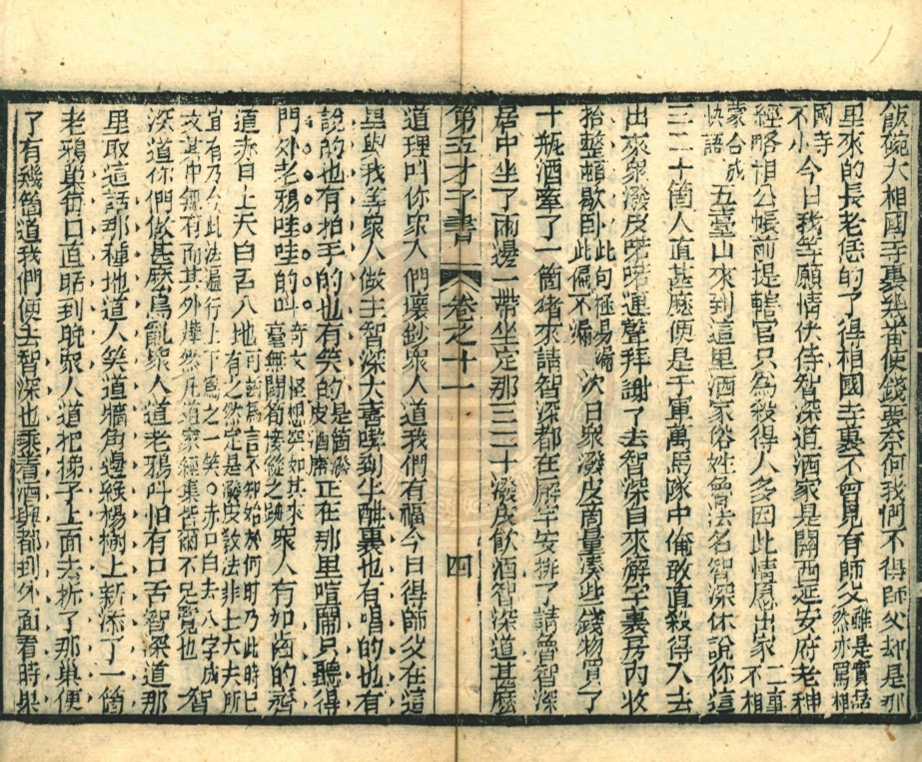 飯碗大相國寺裏幾番使錢要奈何我們不得師父却是那
里來的長老恁的了得相國寺裏不曾見有師父雖是實話然亦罵相
國寺不小今日我等願情伏侍智深道洒家是關西延安府老种
經略相公帳前提轄官只為殺得人多因此情愿出家二事不相
蒙合成快語五臺山來到這里洒家俗姓魯法名智深休說你這
三二十箇人直甚麽便是千軍萬馬隊中俺敢直殺得入去
出來衆潑皮喏喏連聲拜謝了去智深自來廨宇裏房內收
拾整頓歇臥此句極易漏此偏不漏次日衆潑皮商量湊些錢物買了
十瓶酒牽了一箇猪來請智深都在廨宇安排了請魯智深
居中坐了兩邊一帶坐定那三二十潑皮飲酒智深道甚麽
第五才子書 卷之十一 四
道理叫你衆人們壞鈔衆人道我們有福今日得師父在這
里與我等衆人做主智深大喜喫到半酣裏也有唱的也有
說的也有拍手的也有笑的是箇潑皮酒席正在那里喧鬧只聽得
門外老鴉哇哇的叫奇文怪想突如其來毫無關筍接縫之跡衆人有扣齒的齊
道赤口上天白舌入地可齒為言不知始於何時乃此時已有之然定是潑皮教法非士大夫所
宜有乃今此法遍行上下為之一笑○赤口白舌八字成文其中無有而其外燁然凡道家經集皆爾不足覺也智
深道你們做甚麽鳥亂衆人道老鴉叫怕有口舌智深道那
里取這話那種地道人笑道墻角邊綠楊樹上新添了一箇
老鴉巢每日直聒到晚衆人道把梯子上面去拆了那巢便
了有幾箇道我們便去智深也乘着酒興都到外面看時果